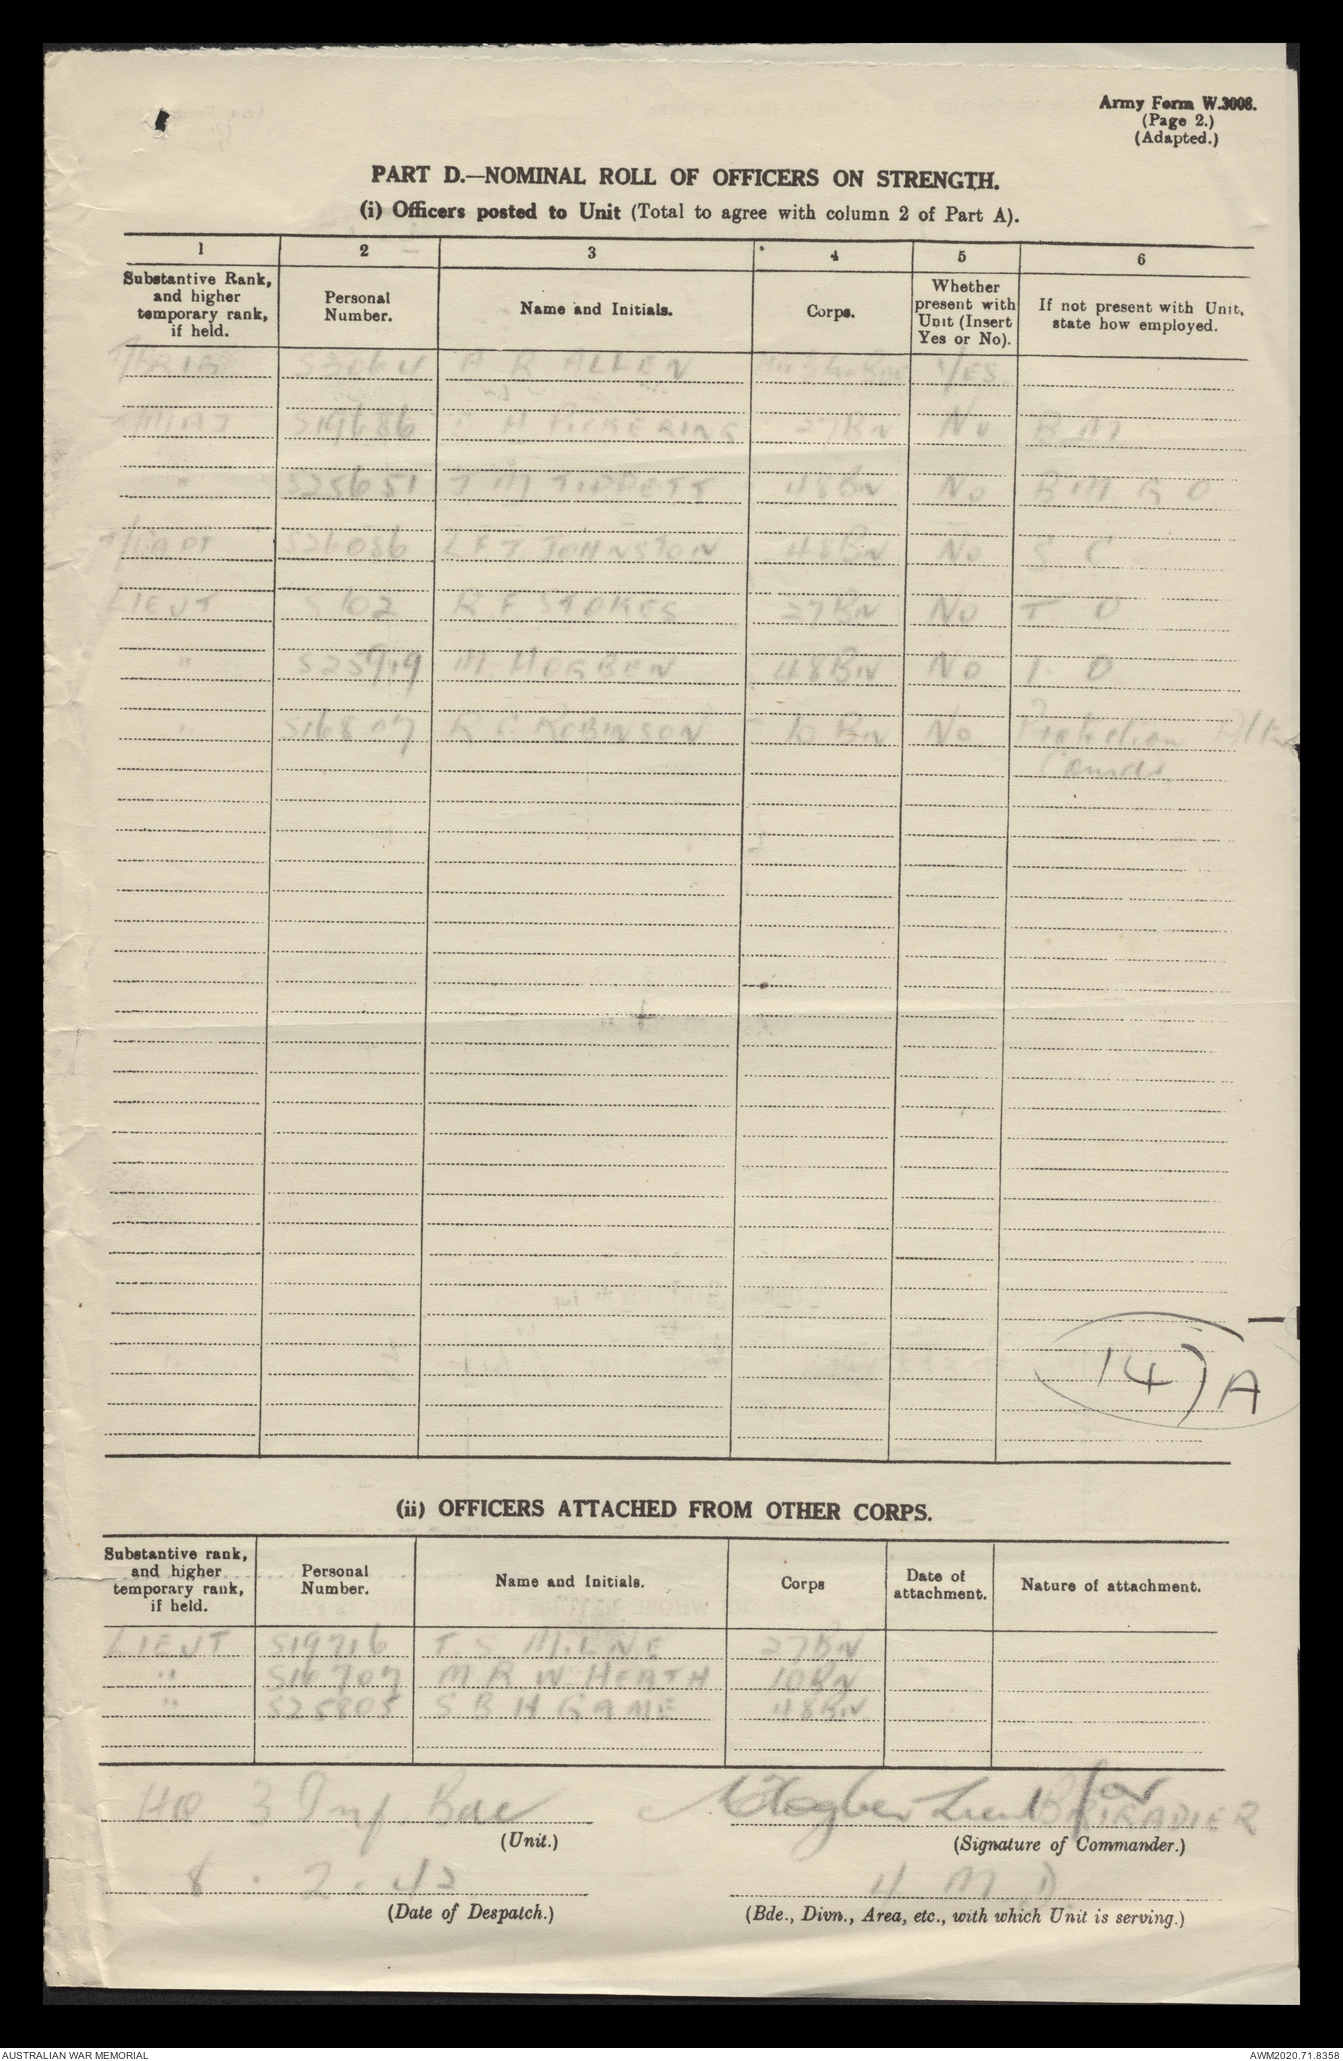 Army Form W.3008.
(Page 2.)
(Adapted.)
PART D.—NOMINAL ROLL OF OFFICERS ON STRENGTH.
(i) Officers posted to Unit (Total to agree with column 2 of Part A).
1 2 3 4 5 6
Substantive Rank, and higher temporary rank, if held. Personal Number. Name and Initials. Corps. Whether present with Unit (Insert Yes or No). If not present with Unit, state how employed.
T/BRIG S3064 A R ALLEN YES
T/MAJ S19686 H PICKERING 27 BN No B M
" S25651 J M TIPPETT 48 BN No B M G O
T/CAPT S26086 L F J JOHNSTON 48 BN No S C
LIEUT S102 R F STOKES 27 BN No T O
" S25919 M. HOGBEN 48 BN No I O
" S16807 R C ROBINSON 10 BN No Protection
Comdr.
14) A
(ii) OFFICERS ATTACHED FROM OTHER CORPS.
Substantive rank, and higher temporary rank, if held. Personal Number. Name and Initials. Corps Date of attachment. Nature of attachment.
LIEUT S19716 T S MILNE 27 BN
" S16707 M R W HEATH 10 BN
" S25805 S B H GAME 48 BN
HQ 3 Inf. Bde MHogben Lieut for BRIGADIER
(Unit.) (Signature of Commander.)
8 . 2 . 42 4 M.D.
(Date of Despatch.) (Bde., Divn., Area, etc., with which Unit is serving.)
AUSTRALIAN WAR MEMORIAL AWM2020.71.8358